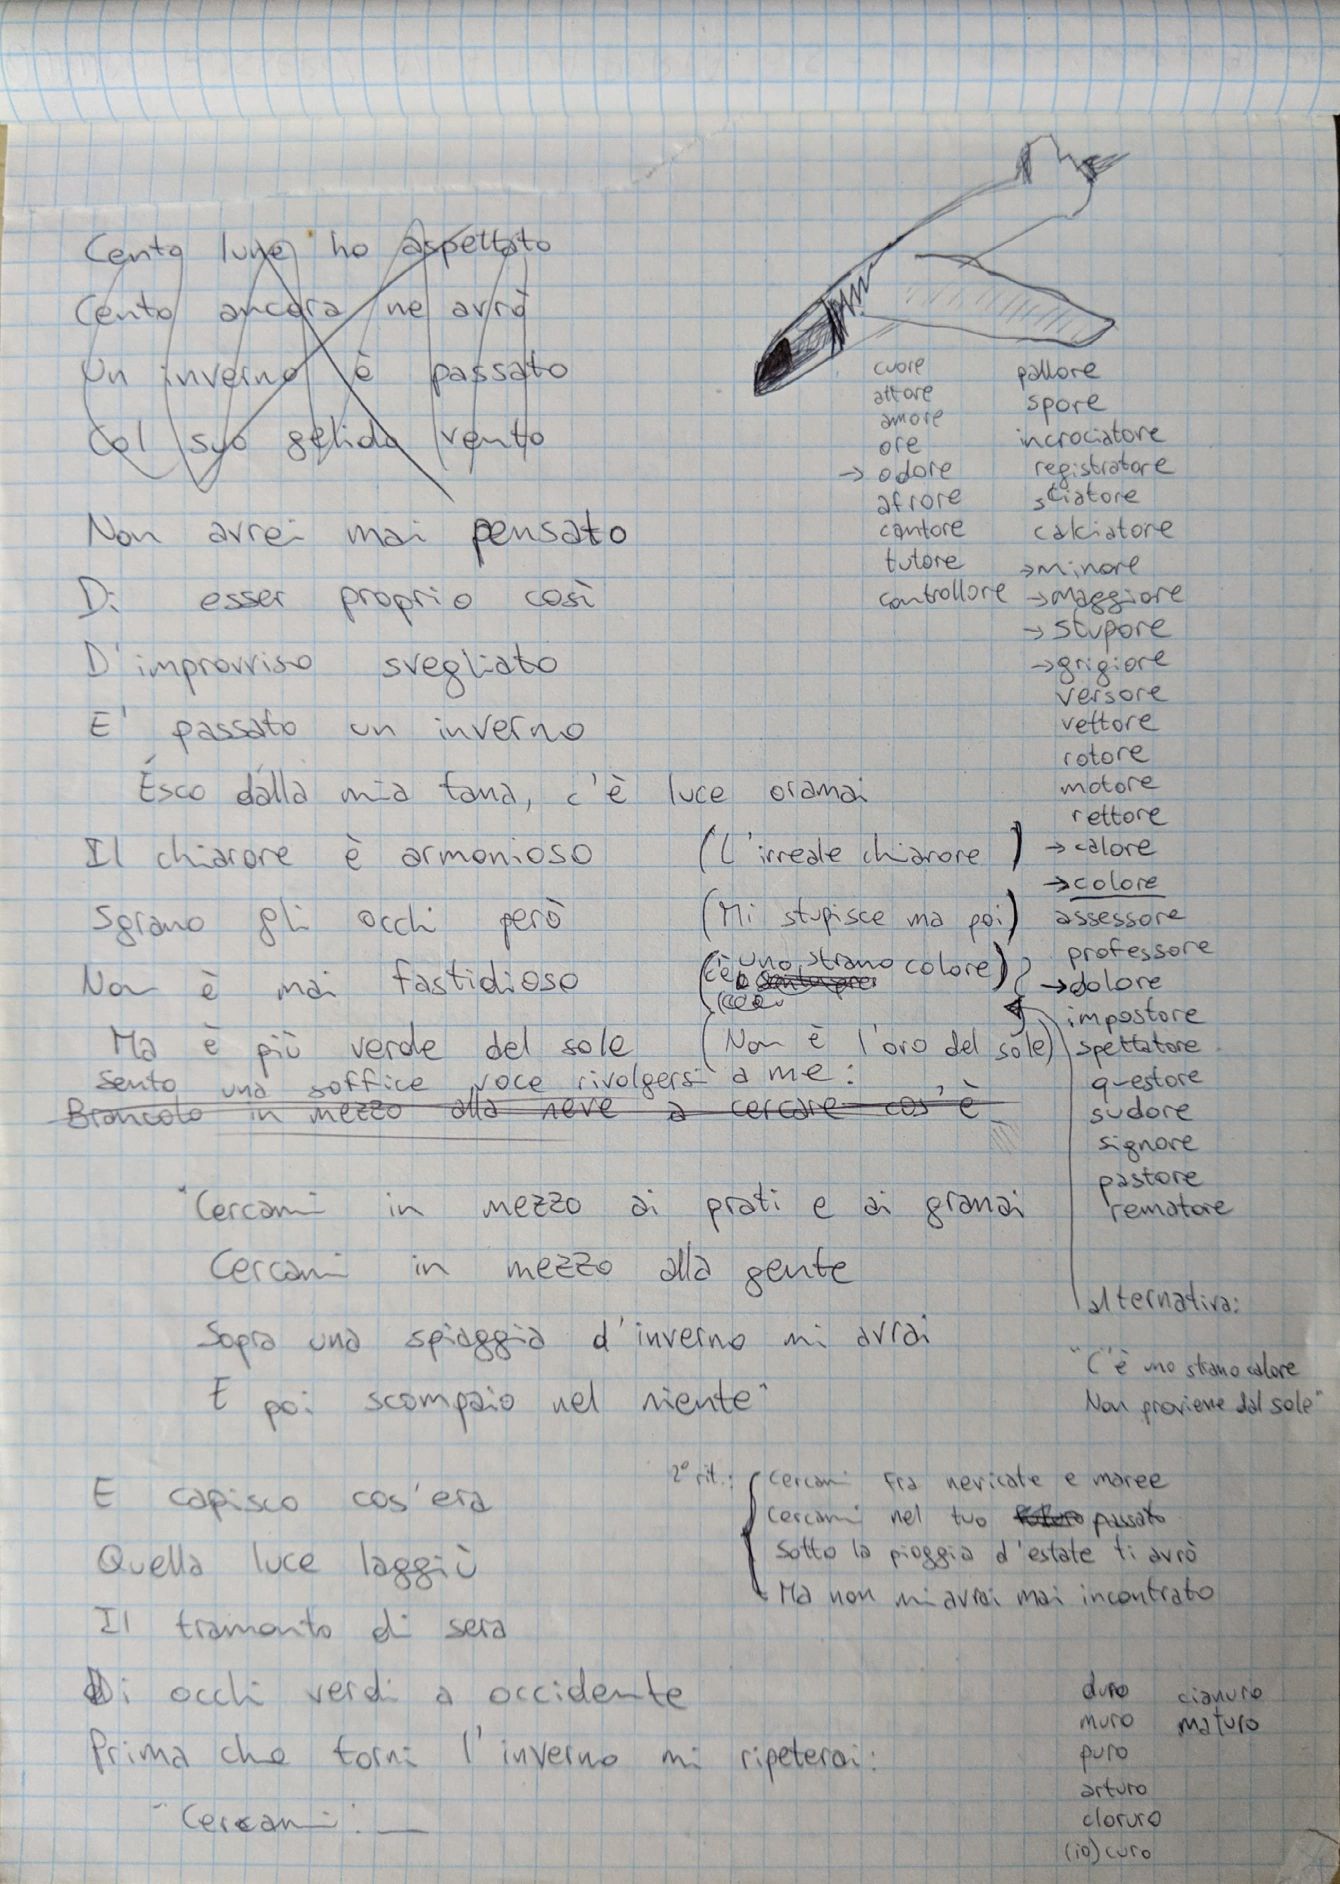 Cento lune ho aspettato
Cento ancora ne avrò
Un inverno è passato
Col suo gelido vento
Non avrei mai pensato
Di esser proprio così
D'improvviso svegliato
E' passato un inverno
Esco dalla mia tana, c'è luce oramai
Il chiarore è armonioso
Sgrano gli occhi però
Non è mai fastidioso
Ma è più verde del sole
Sento una soffice voce rivolgersi a me:
Brancolo in mezzo alla neve a cercare cos'è
(L'irreale chiarore)
(Mi stupisce ma poi)
(C'è uno strano colore)
(Non è l'oro del sole)
"Cercami in mezzo ai prati e ai granai
Cercami in mezzo alla gente
Sopra una spiaggia d'inverno mi avrai
E poi scompaio nel niente"
E capisco cos'era
Quella luce laggiù
Il tramonto di sera
Di occhi verdi a occidente
Prima che torni l'inverno mi ripeterai:
"Cercami..."
2° rit.:
Cercami fra nevicate e maree
Cercami nel tuo futuro passato
Sotto la pioggia d'estate ti avrò
Ma non mi avrai mai incontrato
cuore
attore
amore
ore
→ odore
afrore
cantore
tutore
controllore
pallore
spore
incrociatore
registratore
sciatore
calciatore
→ minore
→ maggiore
→ stupore
→ grigiore
versore
vettore
rotore
motore
rettore
→ calore
→ colore
assessore
professore
→ dolore
impostore
spettatore
questore
sudore
signore
pastore
rematore
alternativa:
"C'è uno strano calore
Non proviene dal sole"
duro
muro
puro
arturo
cloruro
(io) curo
cianuro
maturo